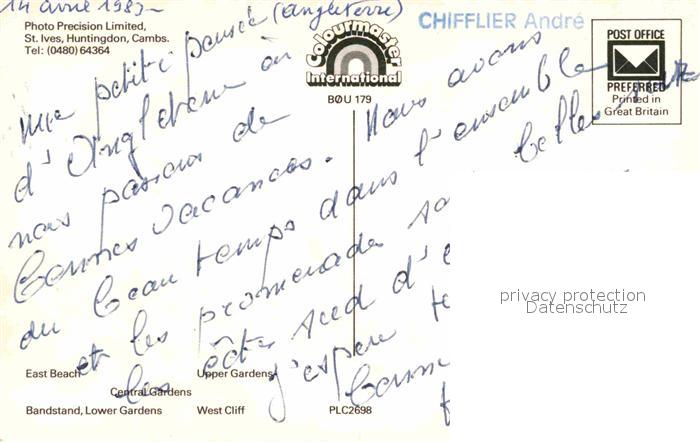 14 avril 1983 - (Angleterre)
CHIFFLIER André
Photo Precision Limited,
St. Ives, Huntingdon, Cambs.
Tel: (0480) 64364
Colourmaster
International
BOU 179
POST OFFICE
PREFERRED
Printed in
Great Britain
Une petite pensée
d'Angleterre où
nous passons de
bonnes vacances. Nous avons
du beau temps dans l'ensemble
et les promenades so belles
les côtes sud d'
J'espère
bonne
privacy protection
Datenschutz
East Beach Upper Gardens
Central Gardens
Bandstand, Lower Gardens West Cliff PLC2698